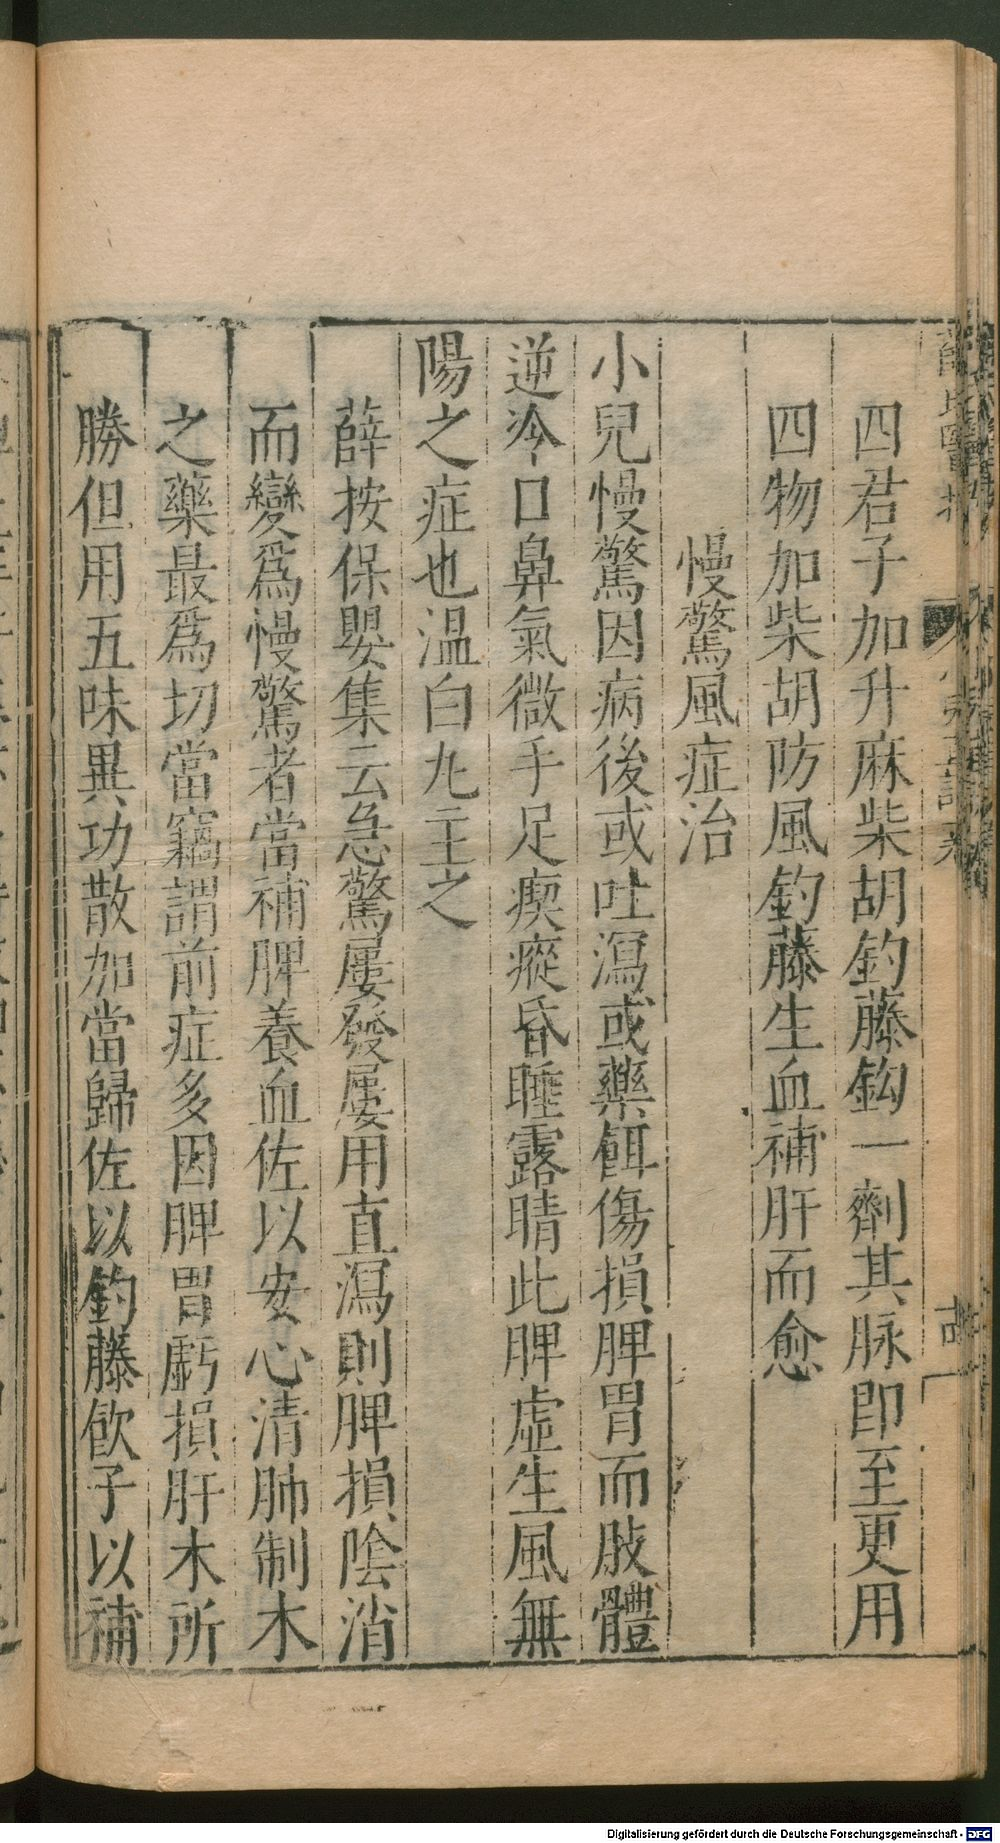 四君子加升麻柴胡釣藤鈎一劑其脉即至更用
四物加柴胡防風釣藤生血補肝而愈
慢驚風症治
小兒慢驚因病後或吐瀉或藥餌傷損脾胃而肢體
逆冷口鼻氣微手足瘈瘲昏睡露睛此脾虛生風無
陽之症也温白丸主之
薛按保嬰集云急驚屢發屢用直瀉則脾損陰消
而變爲慢驚者當補脾養血佐以安心清肺制木
之藥最爲切當竊謂前症多因脾胃虧損肝木所
勝但用五味異功散加當歸佐以釣藤飲子以補
Digitalisierung gefördert durch die Deutsche Forschungsgemeinschaft - DFG